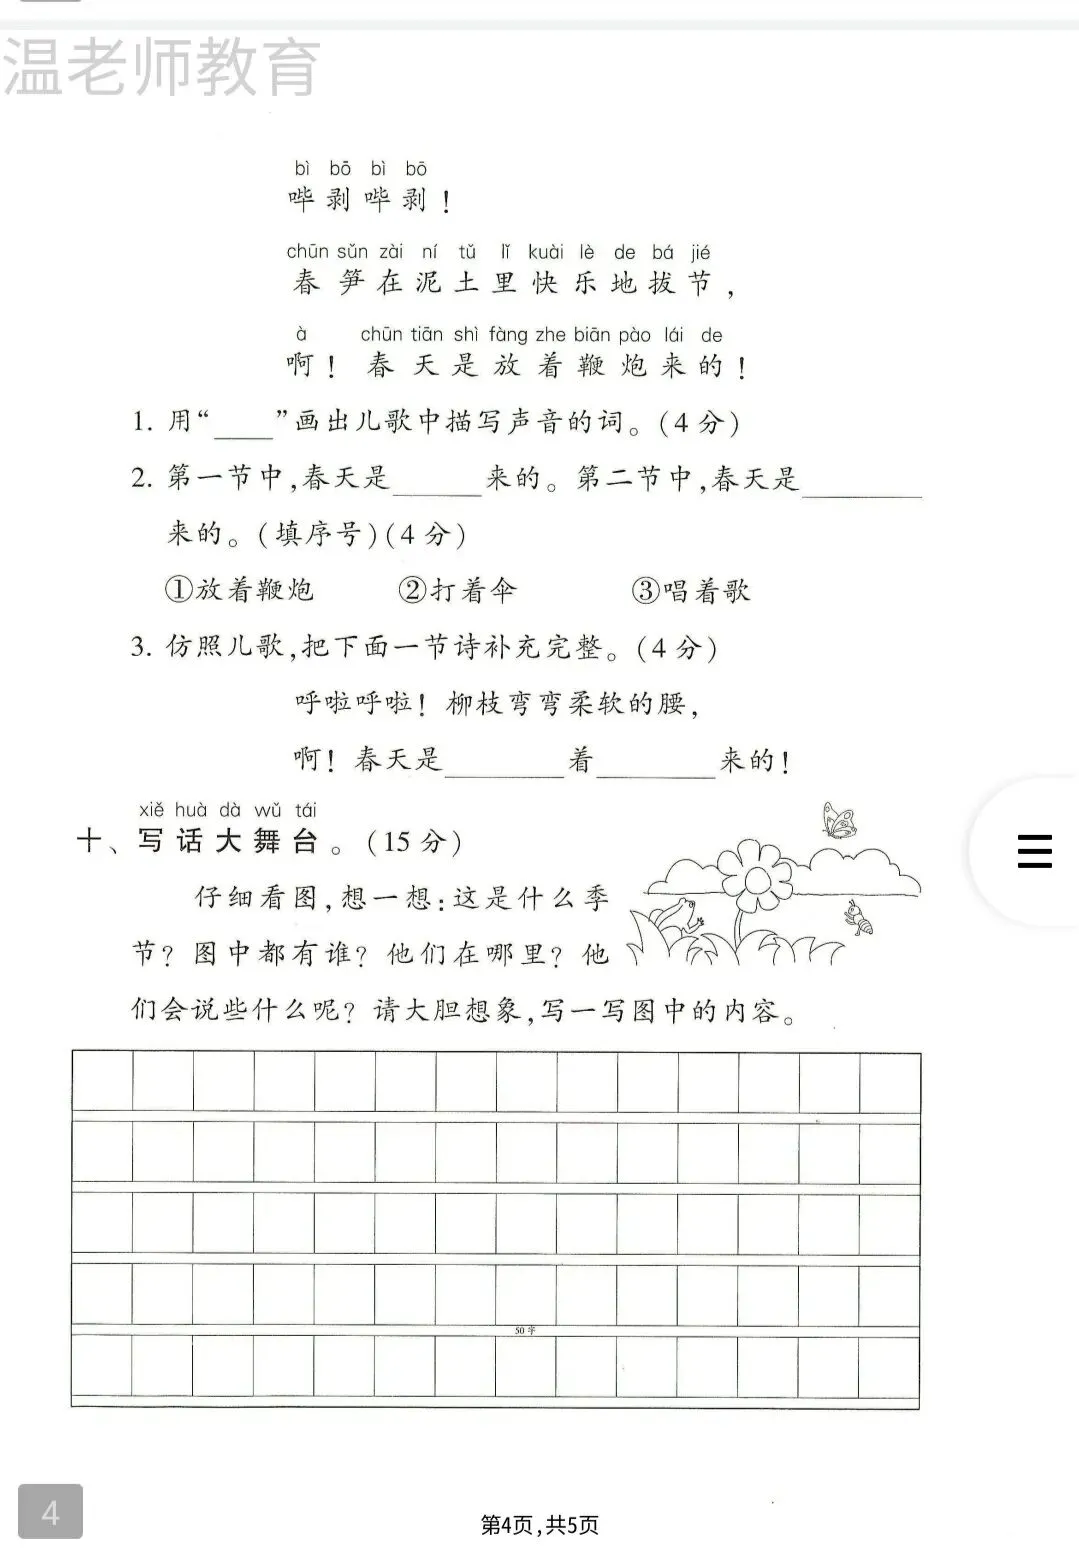 温老师教育
bì bō bì bō
哔剥哔剥！
chūn sǔn zài ní tǔ lǐ kuài lè de bá jié
春笋在泥土里快乐地拔节，
à chūn tiān shì fàng zhe biān pào lái de
啊！春天是放着鞭炮来的！
1. 用“____”画出儿歌中描写声音的词。(4分)
2. 第一节中,春天是______来的。第二节中,春天是________
来的。(填序号)(4分)
①放着鞭炮 ②打着伞 ③唱着歌
3. 仿照儿歌,把下面一节诗补充完整。(4分)
呼啦呼啦！柳枝弯弯柔软的腰，
啊！春天是________着________来的！
xiě huà dà wǔ tái
十、写话大舞台。(15分)
仔细看图,想一想:这是什么季
节？图中都有谁？他们在哪里？他
们会说些什么呢？请大胆想象,写一写图中的内容。
50字
4
第4页,共5页